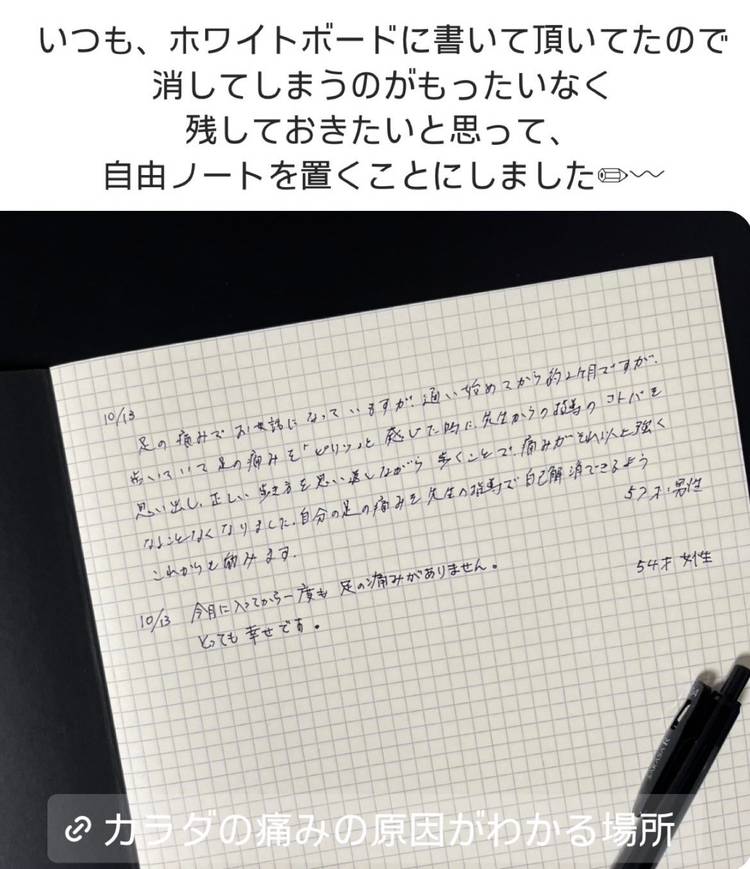 いつも、ホワイトボードに書いて頂いてたので
消してしまうのがもったいなく
残しておきたいと思って、
自由ノートを置くことにしました✏〰
10/13
足の痛みでお世話になっていますが、通い始めてから約2ヶ月ですが、
歩いていて足の痛みを「ピリッ」と感じた時に、先生からの指導のコトバを
思い出し、正しい歩き方を思い返しながら歩くことで、痛みがそれ以上強く
なることなくなりました。自分の足の痛みを先生の指導で自己解消できるよう
これからも励みます。
57才 男性
10/13 今月に入ってから一度も足の痛みがありません。
とっても幸せです。
54才 女性
カラダの痛みの原因がわかる場所